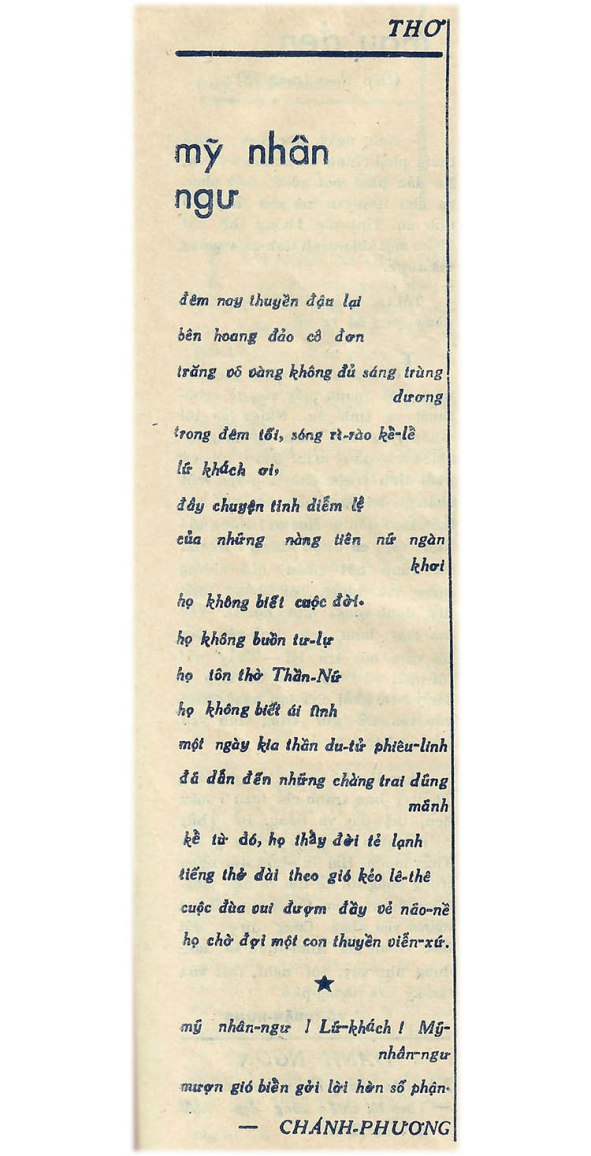 THƠ
mỹ nhân
ngư
đêm nay thuyền đậu lại
bên hoang đảo cô đơn
trăng võ vàng không đủ sáng trùng
dương
trong đêm tối, sóng rì-rào kề-lề
lữ khách ơi,
đây chuyện tình diễm lệ
của những nàng tiên nữ ngàn
khơi
họ không biết cuộc đời.
họ không buồn tư-lự
họ tôn thờ Thần-Nữ
họ không biết ái tình
một ngày kia thần du-tử phiêu-linh
đã dẫn đến những chàng trai dũng
mãnh
kể từ đó, họ thấy đời tẻ lạnh
tiếng thở dài theo gió kéo lê-thê
cuộc đùa vui đượm đầy vẻ não-nề
họ chờ đợi một con thuyền viễn-xứ.
★
mỹ nhân-ngư ! Lữ-khách ! Mỹ-
nhân-ngư
mượn gió biển gởi lời hờn số phận.
— CHÁNH-PHƯƠNG